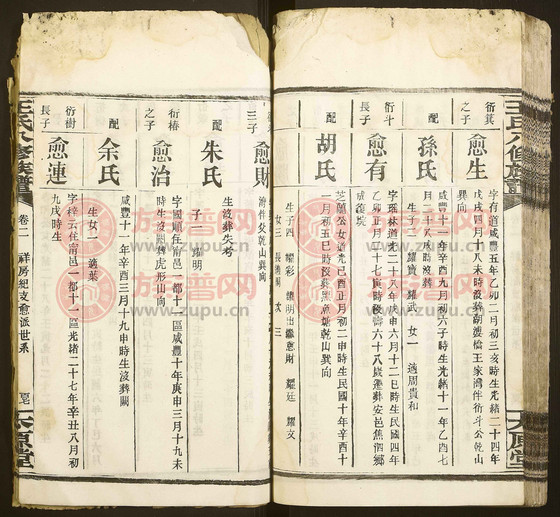 王氏八修族譜
太原堂
衍箕
之子
愈生
字有道咸豐五年乙卯二月初三亥時生光緒二十四年
戊戌四月十八未時沒葬朝渡橋王家灣伴衍斗公乾山
配
孫氏
咸豐十一年辛酉九月初六子時生光緒十一年乙酉七
生子二 耀寶 耀武 女一 適周貴和
衍斗
長子
愈有
字理林道光二十八年戊申六月十二巳時生民國四年
乙卯正月十七寅時沒壽六十八歲葬安邑焦泗鄉
配
胡氏
芝蘭公女道光己酉正月初二申時生民國十年辛酉十
一月初五巳時沒葬黑魚塘乾山巽向
生子四 耀彩 耀明出繼愈財 耀廷 耀文
衍
三子
愈財
配
朱氏
生沒葬失考
子一 耀明
衍椿
之子
愈治
字國順住南邑一都十一區咸豐十年庚申三月十九未
時生沒葬虎形山向
配
余氏
咸豐十一年辛酉三月十九申時生沒葬闕
生女一 適葉
衍樹
長子
愈連
字梓云住南邑一都十一區光緒二十七年辛丑八月初
九戌時生
王氏八修族譜
卷二
祥房紀支愈派世系
太原堂
族譜网
www.zupu.cn
族譜网
www.zupu.cn